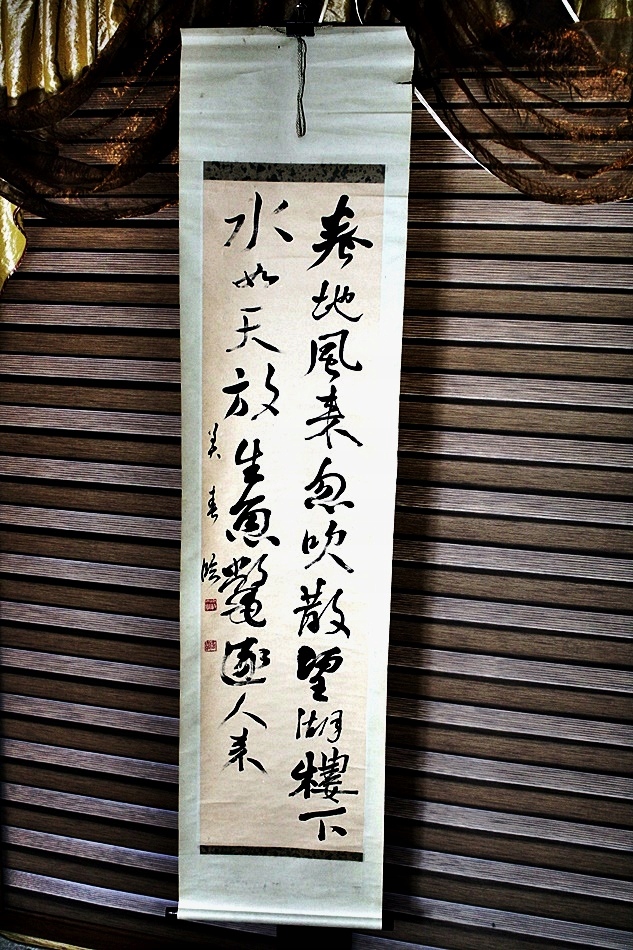 卷地風来忽吹散望湖樓下
水如天放生魚鱉逐人来